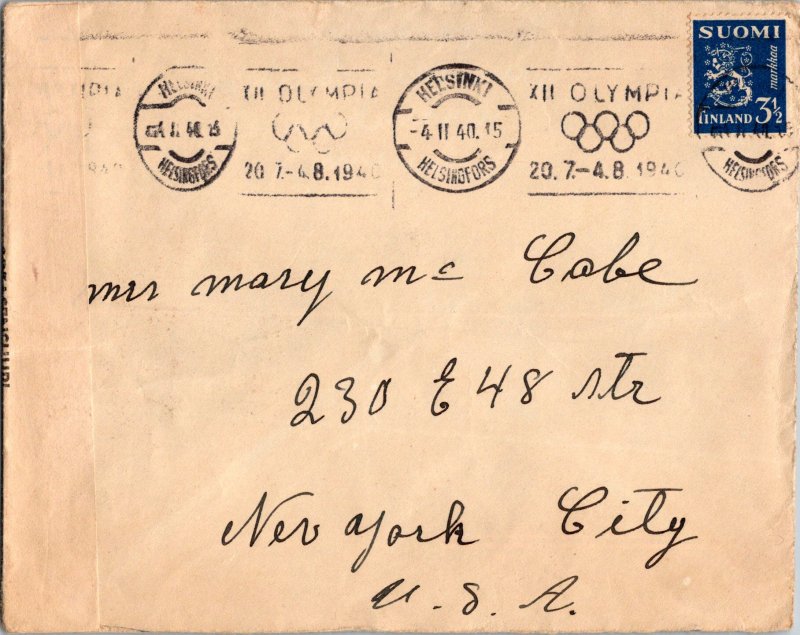 SUOMI
markkaa
FINLAND 3½
HELSINKI XII OLYMPIA HELSINKI XII OLYMPIA
II. 40. 15 -4. II 40. 15
HELSINGFORS 20. 7.-4.8. 1940 HELSINGFORS 20. 7.-4.8. 1940 HELSINGFORS
mrs mary mc Cabe
230 E 48 Str
New York City
U. S. A.